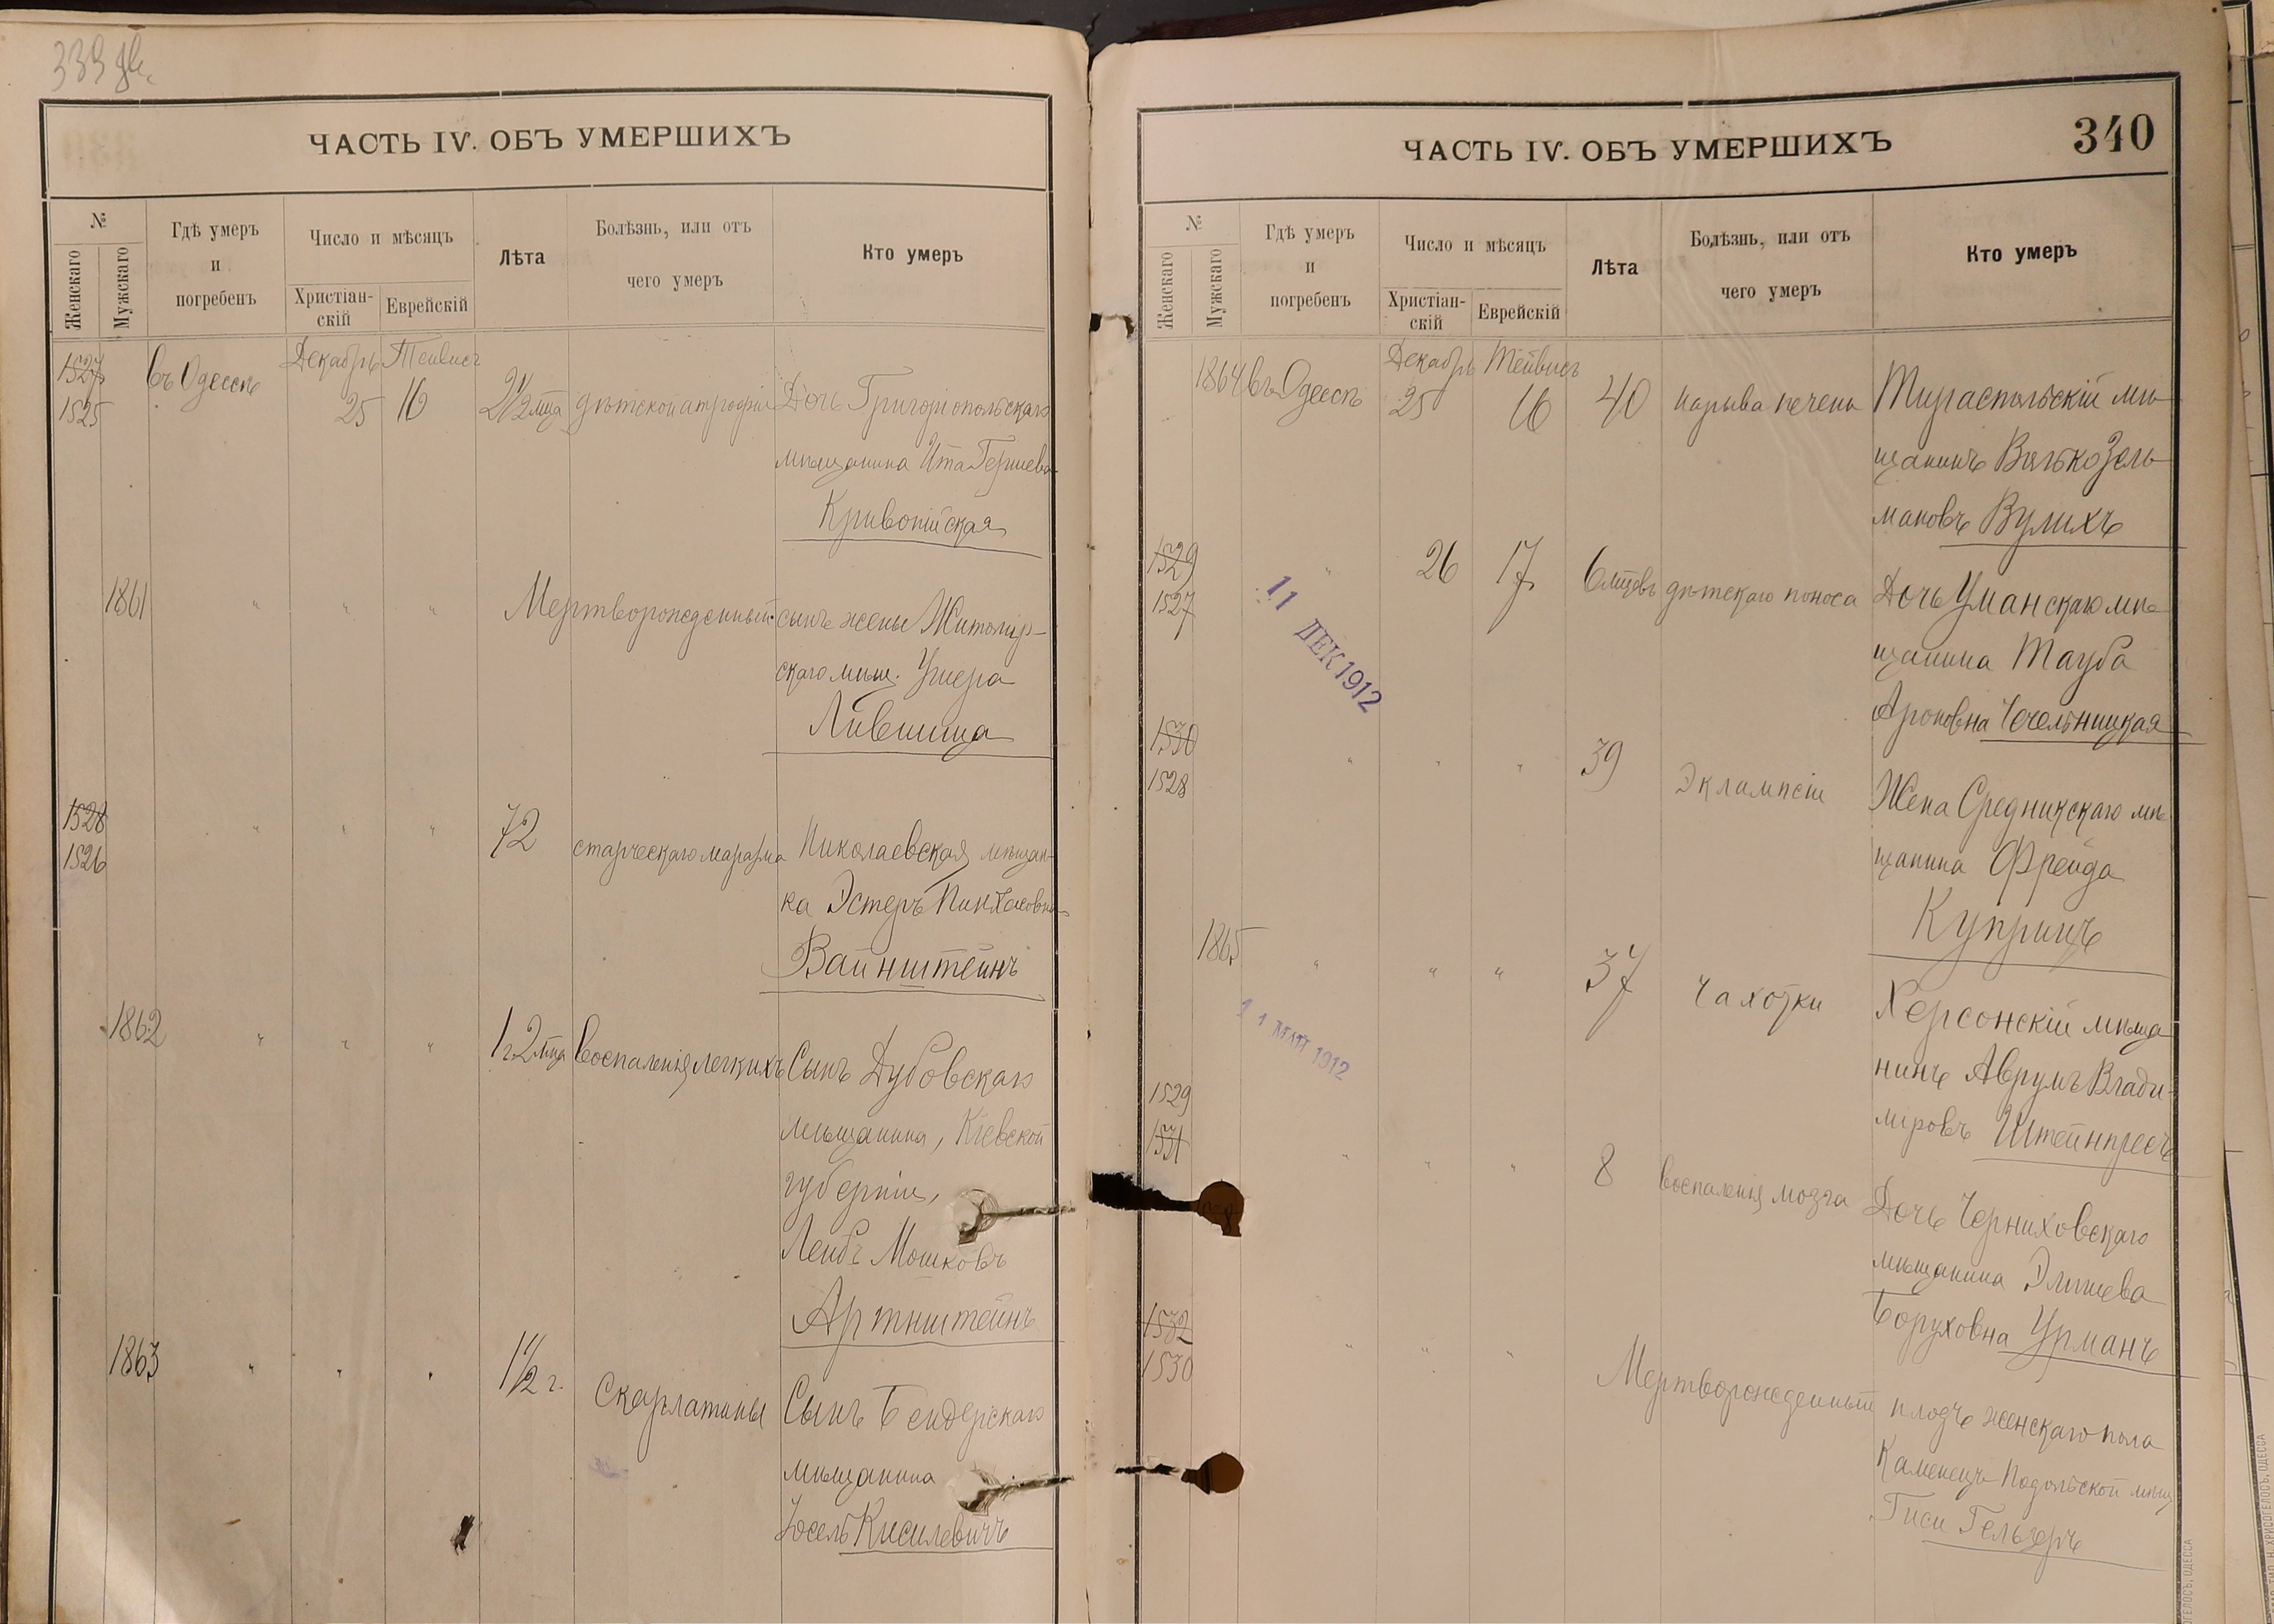 339 об.
ЧАСТЬ IV. ОБЪ УМЕРШИХЪ
№
Женскаго
Мужскаго
Гдѣ умеръ
и
погребенъ
Число и мѣсяцъ
Христіан-
скій
Еврейскій
Лѣта
Болѣзнь, или отъ
чего умеръ
Кто умеръ
1527
1525
въ Одессѣ
Декабрь
25
Тейвисъ
16
2 1/2 мца
дѣтской атрофіи
Дочь Григоріопольскаго
мѣщанина Ита Гершева
Кривопійская
1861
" " "
Мертворожденный
сынъ жены Житомір-
скаго мѣщ. Ушера
Лившица
1528
1526
" " "
72
старческаго маразма
Николаевская мѣщан-
ка Эстеръ Пинхасовна
Вайнштейнъ
1862
" " "
1 г. 2 мца
воспаленія легкихъ
Сынъ Дубовскаго
мѣщанина, Кіевской
губерніи,
Лейбъ Мошковъ
Артнштейнъ
1863
" " "
1 1/2 г.
Скарлатины
Сынъ Бендерскаго
мѣщанина
Іосель Кисилевичъ
ЧАСТЬ IV. ОБЪ УМЕРШИХЪ
340
№
Женскаго
Мужскаго
Гдѣ умеръ
и
погребенъ
Число и мѣсяцъ
Христіан-
скій
Еврейскій
Лѣта
Болѣзнь, или отъ
чего умеръ
Кто умеръ
1864
въ Одессѣ
Декабрь
25
Тейвисъ
16
40
нарыва печени
Тираспольскій мѣ
щанинъ Зель
мановъ Вулихъ
1529
1527
"
26
17
6 мцевъ
дѣтскаго поноса
Дочь Уманскаго мѣ
щанина Тауба
Ароновна Чечельницкая
11 ДЕК 1912
1530
1528
" " "
39
Эклампсіи
Жена Средникскаго мѣ
щанина Фрейда
Куприцъ
1865
" " "
37
Чахотки
Херсонскій мѣща
нинъ Аврумъ Влади-
міровъ Штейнпресъ
1912
1529
1531
" " "
8
воспаленія мозга
Дочь Черниховскаго
мѣщанина Элишева
Боруховна Урманъ
1532
1530
" " "
Мертворожденный
плодъ женскаго пола
Каменецъ-Подольской мѣщ
Гиси Гельгеръ